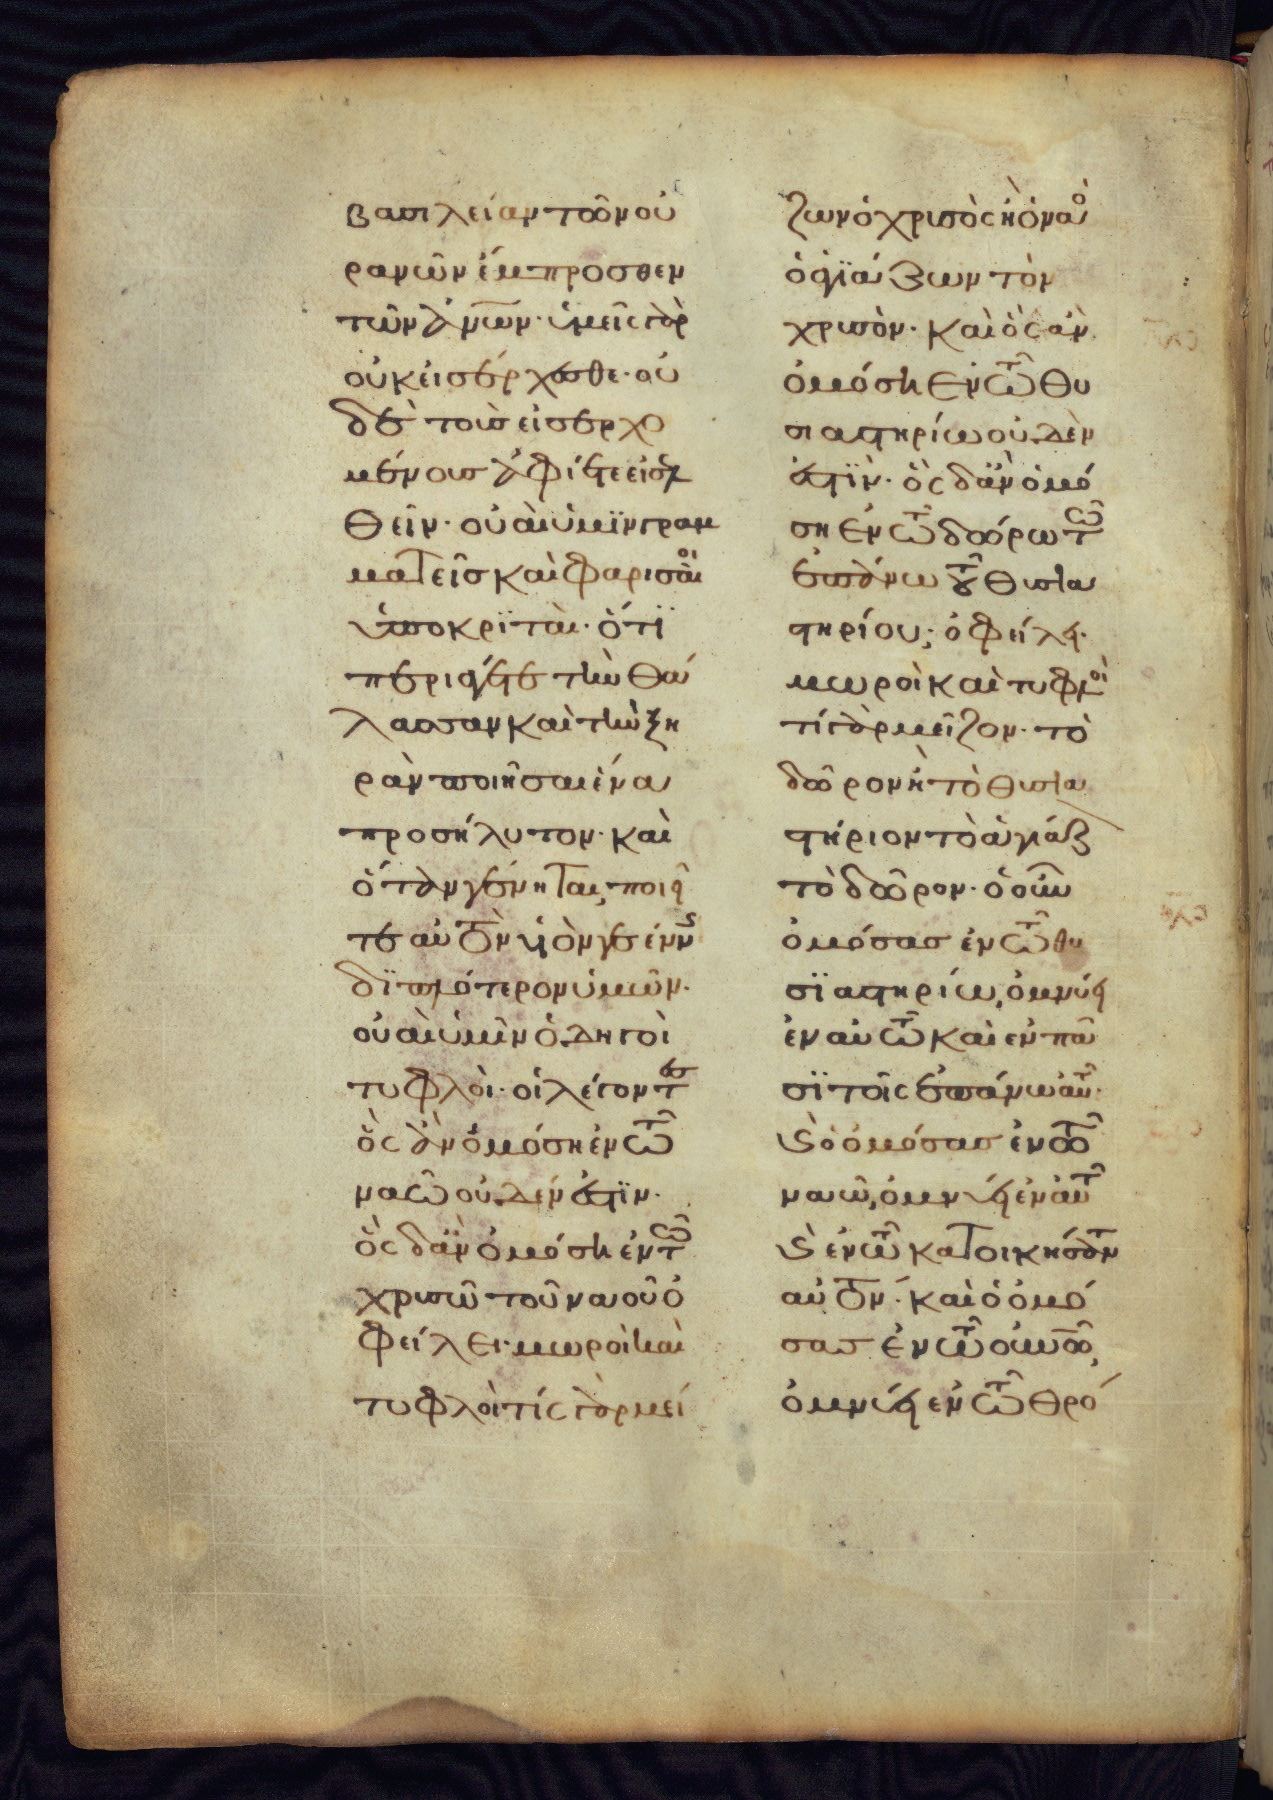 βασιλείαν τῶν οὐ
ρανῶν ἔμπροσθεν
τῶν ἀν̅ων· ὑμεῖς γὰρ
οὐκ εἰσέρχεσθε· οὐ
δὲ τοὺς εἰσερχο
μένους ἀφίετε εἰσελ
θεῖν· οὐαὶ ὑμῖν γραμ
ματεῖς καὶ φαρισαῖοι
ὑποκρϊταὶ· ὅτϊ
περιάγετε τὴν θά
λασσαν καὶ τὴν ξη
ρὰν ποιῆσαι ἕνα
προσήλυτον· καὶ
ὅταν γένηται, ποιεῖ
τε αὐτὸν υἱὸν γεέννης
δϊπλότερον ὑμῶν·
οὐαὶ ὑμῖν ὁδηγοὶ
τυφλοὶ· οἱ λέγοντες
ὃς ἂν ὀμόση ἐν τῶ
ναῶ οὐδέν ἐστϊν·
ὃς δ' ἂν ὀμόση ἐν τῶ
χρυσῶ τοῦ ναοῦ ὀ
φείλει· μωροὶ καὶ
τυφλοὶ τίς γὰρ μεί
ζων ὁ χρυσὸς ἢ ὁ ναὸ
ὁ ἁγϊάζων τὸν
χρυσὸν· καὶ ὃς ἂν
ὀμόση ἐν τῶ θυ
σιαστηρίω οὐδὲν
ἐστϊν· ὃς δ' ἂν ὀμό
ση ἐν τῶ δώρω τῶ
ἐπάνω τοῦ θυσια
στηρίου, ὀφείλει·
μωροὶ καὶ τυφλοὶ
τί γὰρ μεῖζον· τὸ
δῶρον ἢ τὸ θυσια
στήριον τὸ ἁγιάζ
τὸ δῶρον· ὁ οὖν
ὀμόσας ἐν τῶ θυ
σϊαστηρίω, ὀμνύει
ἐν αὐτῶ καὶ ἐν πᾶ
σϊ τοῖς ἐπάνω αὐτοῦ·
καὶ ὁ ὀμόσας ἐν τῶ
ναῶ, ὀμνύει ἐν αὐτῶ
καὶ ἐν τῶ κατοικήσαντι
αὐτόν· καὶ ὁ ὀμό
σας ἐν τῶ οὐν̅ω,
ὀμνύει ἐν τῶ θρό